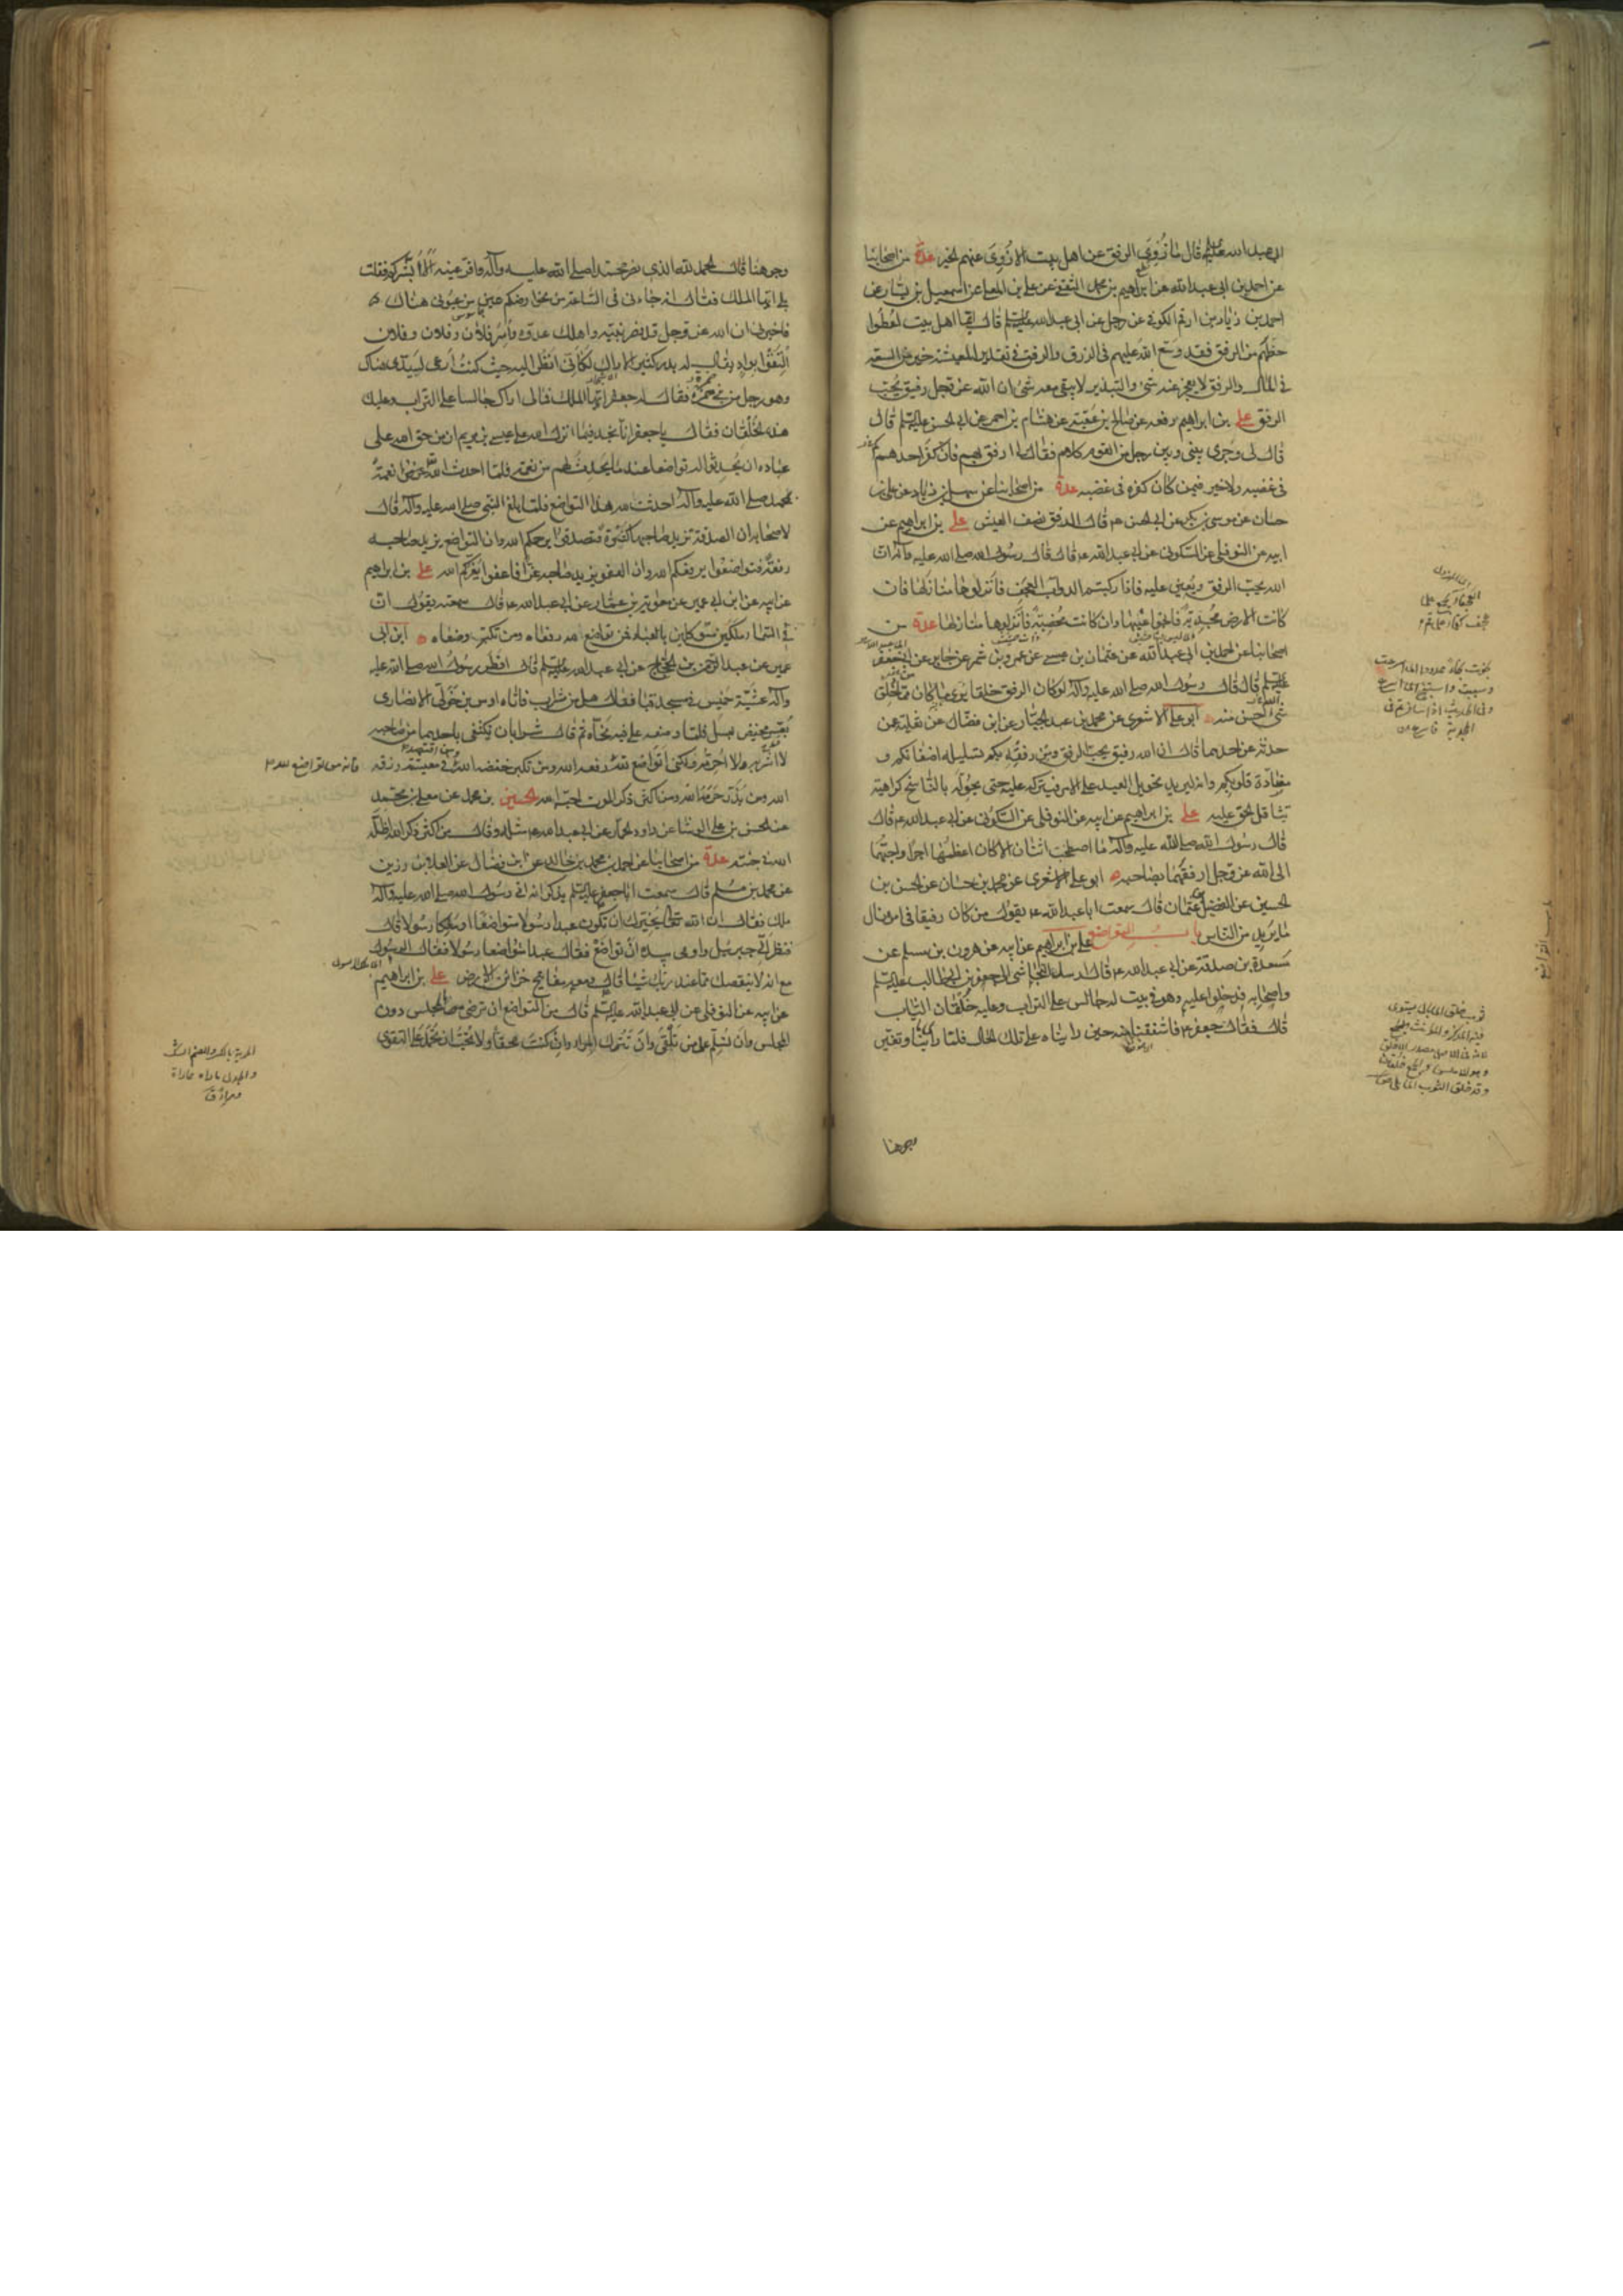 ابی عبد الله علیه السلم قال ما زوی الرفق عن اهل بیت الا زوی عنهم الخیر عدة من اصحابنا
عن احمد بن ابی عبدالله عن ابراهیم بن محمد الثقفی عن علی بن المعلی عن اسمعیل بن یسار عن
احمد بن زیاد بن ارقم الکوفی عن رجل عن ابی عبدالله علیه السلم قال ایما اهل بیت اعطوا
حظهم من الرفق فقد وسع الله علیهم فی الرزق والرفق فی تقدیر المعیشة خیر من السعة
فی المال والرفق لا یعجز عنه شئ والتبذیر لا یبقی معه شئ ان الله عز وجل رفیق یحب
الرفق علی بن ابراهیم رفعه عن صالح بن عقبة عن هشام بن احمر عن ابی الحسن علیه السلم قال
قال لی وجری بینی وبین رجل من القوم کلام فقال لی ارفق بهم فان کفر احدهم
فی غضبه ولا خیر فیمن کان کفره فی غضبه عدة من اصحابنا عن سهل بن زیاد عن علی بن
حسان عن موسی بن بکر عن ابی الحسن ع قال الرفق نصف العیش علی بن ابراهیم عن
ابیه عن النوفلی عن السکونی عن ابی عبدالله ع قال قال رسول الله صلی الله علیه وآله ان
الله یحب الرفق ویعین علیه فاذا رکبتم الدواب العجف فانزلوها منازلها فان
کانت الارض مجدبة فانجوا عنها وان کانت مخصبة فانزلوها منازلها عدة من
اصحابنا عن احمد بن ابی عبدالله عن عثمان بن عیسی عن عمرو بن شمر عن جابر عن ابی جعفر
علیه السلم قال قال رسول الله صلی الله علیه وآله لو کان الرفق خلقا یری ما کان مما خلق
شئ احسن منه ابو علی الاشعری عن محمد بن عبد الجبار عن ابن فضال عن ثعلبة عن
حدثه عن احدهما قال ان الله رفیق یحب الرفق ومن رفقه بکم تسلیله اضغانکم و
مضادة قلوبکم وانه لیرید تحویل العبد علی الامر فیترکه علیه حتی یحوله بالناسخ کراهیة
تثاقل الحق علیه علی بن ابراهیم عن ابیه عن النوفلی عن السکونی عن ابی عبدالله ع قال
قال رسول الله صلی الله علیه وآله ما اصطحب اثنان الا کان اعظمهما اجرا واحبهما
الی الله عز وجل ارفقهما بصاحبه ابو علی الاشعری عن محمد بن حسان عن الحسن بن
الحسین عن الفضیل بن عثمان قال سمعت ابا عبدالله ع یقول من کان رفیقا فی امره نال
ما یرید من الناس باب التواضع علی بن ابراهیم عن ابیه عن هرون بن مسلم عن
مسعدة بن صدقة عن ابی عبدالله ع قال ارسل النجاشی الی جعفر بن ابی طالب علیه السلم
واصحابه فدخلوا علیه وهو فی بیت له جالس علی التراب وعلیه خلقان الثیاب
قال فقال جعفر ع فاشفقنا منه حین رایناه علی تلک الحال فلما رای ما بنا وتغیر
وجوهنا
وجوهنا قال الحمد لله الذی نصر محمدا صلی الله علیه وآله واقر عینه الا ابشرکم فقلت
بلی ایها الملک فقال انه جاءنی فی الساعة من نحو ارضکم عین من عیونی هناک
فاخبرنی ان الله عز وجل قد نصر نبیه واهلک عدوه واسر فلان وفلان وفلان
التقوا بواد یقال له بدر کثیر الاراک لکانی انظر الیه حیث کنت ارعی لسیدی هناک
وهو رجل من بنی ضمرة فقال له جعفر ایها الملک فمالی اراک جالسا علی التراب وعلیک
هذه الخلقان فقال یا جعفر انا نجد فیما انزل الله علی عیسی بن مریم ان من حق الله علی
عباده ان یحدثوا له تواضعا عند ما یحدث لهم من نعمة فلما احدث الله لی نعمة
بمحمد صلی الله علیه وآله احدثت لله هذا التواضع فلما بلغ النبی صلی الله علیه وآله قال
لاصحابه ان الصدقة تزید صاحبها کثرة فتصدقوا یرحمکم الله وان التواضع یزید صاحبه
رفعة فتواضعوا یرفعکم الله وان العفو یزید صاحبه عزا فاعفوا یعزکم الله علی بن ابراهیم
عن ابیه عن ابن ابی عمیر عن معویة بن عمار عن ابی عبدالله ع قال سمعته یقول ان
فی السماء ملکین موکلین بالعباد فمن تواضع لله رفعاه ومن تکبر وضعاه ابن ابی
عمیر عن عبد الرحمن بن الحجاج عن ابی عبدالله علیه السلم قال افطر رسول الله صلی الله علیه
وآله عشیة خمیس فی مسجد قبا فقال هل من شراب فاتاه اوس بن خولی الانصاری
بعس مخیض بعسل فلما وضعه علی فیه نحاه ثم قال شرابان یکتفی باحدهما من صاحبه
لا اشربه ولا احرمه ولکنی اتواضع لله رفعه الله ومن تکبر خفضه الله ومن اقتصد فی معیشته رزقه
فانه من تواضع لله
الله ومن بذر حرمه الله ومن اکثر ذکر الموت احبه الله الحسین بن محمد عن معلی بن محمد
عن الحسن بن علی الوشا عن داود الحمار عن ابی عبدالله ع مثله وقال من اکثر ذکر الله اظله
الله فی جنته عدة من اصحابنا عن احمد بن محمد بن خالد عن ابن فضال عن العلا بن رزین
عن محمد بن مسلم قال سمعت ابا جعفر علیه السلم یذکر انه اتی رسول الله صلی الله علیه وآله
ملک فقال ان الله تعالی یخیرک ان تکون عبدا رسولا متواضعا او ملکا رسولا قال
فنظر الی جبرئیل واومی بیده ان تواضع فقال عبدا متواضعا رسولا فقال الرسول
مع انه لا ینقصک مما عند ربک شیئا قال ومعه مفاتیح خزائن الارض علی بن ابراهیم
عن ابیه عن النوفلی عن ابی عبدالله علیه السلم قال من التواضع ان ترضی بالمجلس دون
المجلس وان تسلم علی من تلقی وان تترک المراء وان کنت محقا ولا تحب ان تحمد علی التقوی